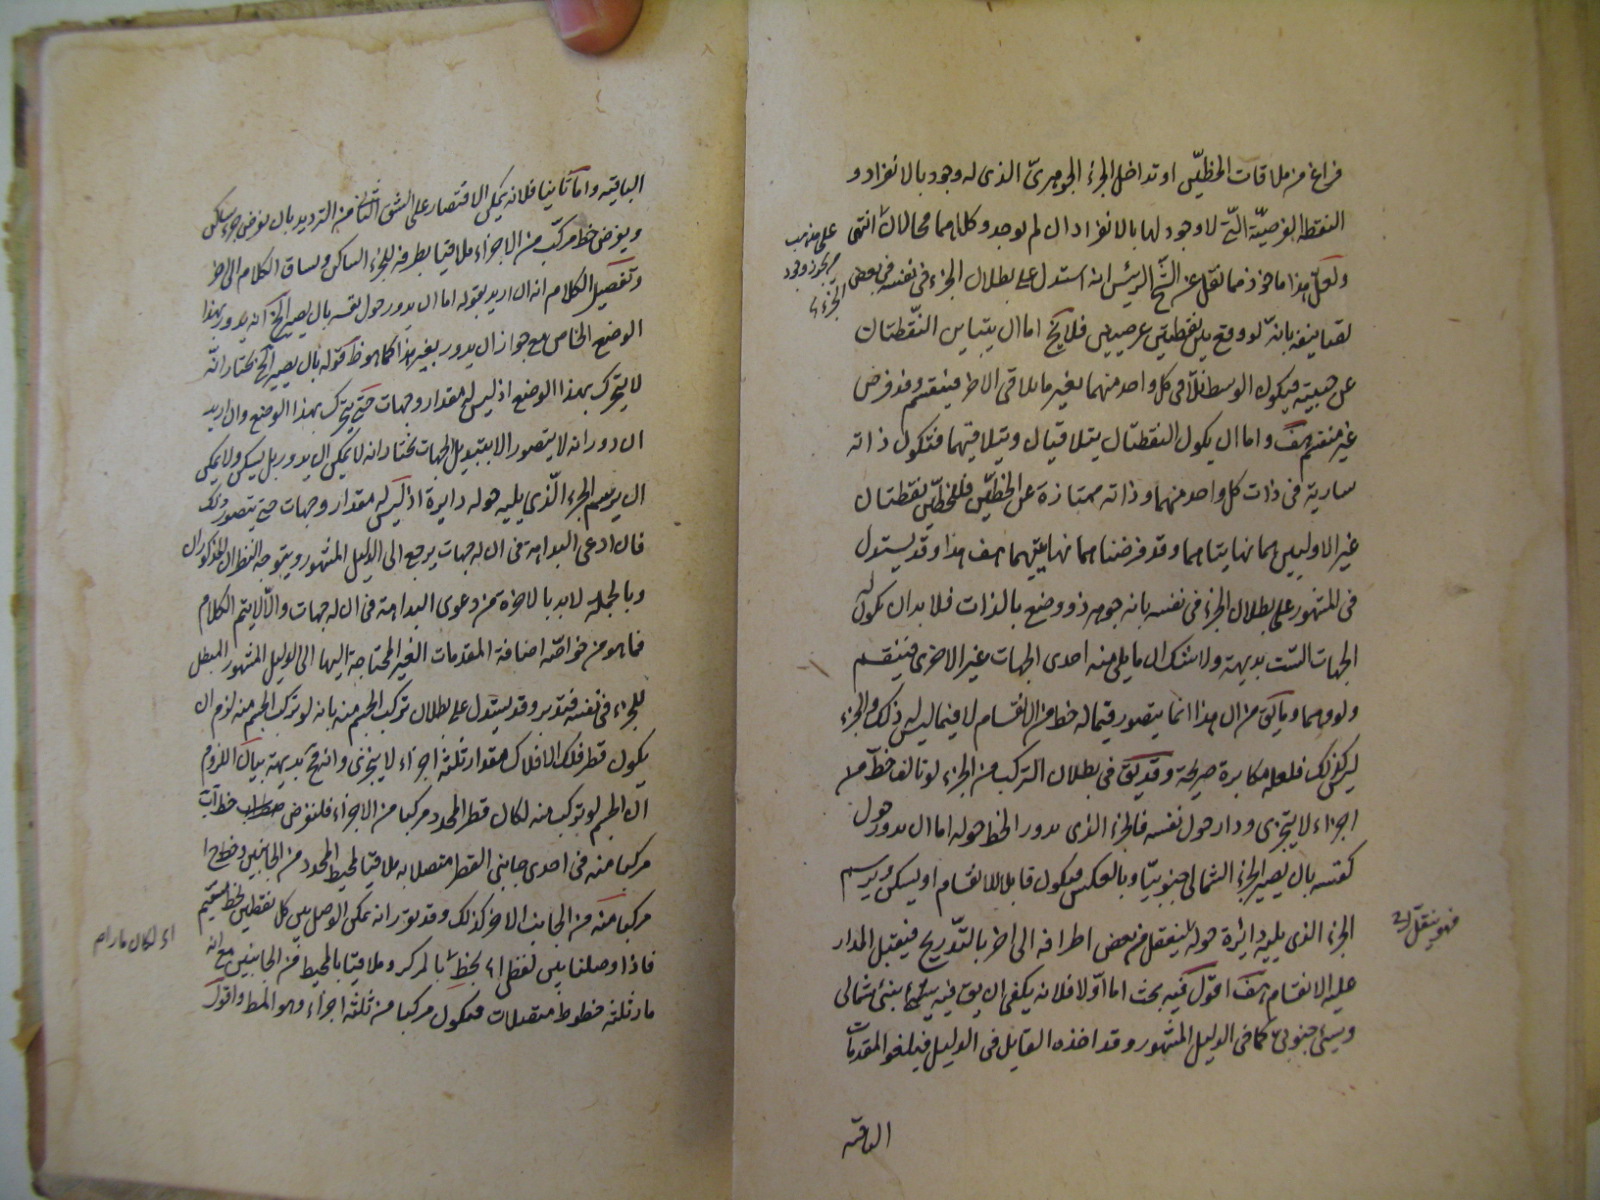 فراغ من ملاقات الخطين او تداخل الجزء الجوهرى الذى له وجود بالانفراد و
النقطة العرضية التى لا وجود لها بالانفراد ان لم يوجد وكلاهما محالان انتهى
ولعل هذا ماخوذ مما نقل عن الشيخ الرئيس انه استدل على بطلان الجزء فى نفسه فى بعض
بانه لو وقع بين نقطتين عرضيتين فلا يخ اما ان يتباين النقطتان
عن جنبيه فيكون الوسط تلاقى كل واحد منهما بغير ما يلاقى الاخر فينقسم وقد فرض
غير منقسم هف واما ان يكون النقطتان يتلاقيان ويتلاقيهما فتكون ذاته
سارية فى ذات كل واحد منهما وذاته ممتازة عن الخطين فللخطين نقطتان
غير الاوليين هما نهايتاهما وقد فرضنا هما نهايتيهما هف هذا وقد يستدل
فى المشهور على بطلان الجزء فى نفسه بانه جوهر ذو وضع بالذات فلا بد ان يكون له
الجهات الست بديهة ولا شك ان ما يلى منه احدى الجهات غير الاخرى فينقسم
ولو وهما وما يق من ان هذا انما يتصور فيما له حظ من الانقسام لا فيما ليس له ذلك والجزء
ليس كذلك فلعله مكابرة صريحة وقد يق فى بطلان التركب من الجزء لو تالف خط من
اجزاء لا يتجزى ودار حول نفسه فالجزء الذى يدور الخط حوله اما ان يدور حول
نفسه بان يصير الجزء الشمالى جنوبيا وبالعكس فيكون قابلا للانقسام او يسكن ويرسم
الجزء الذى يليه دايرة حوله فينتقل من بعض اطرافه الى اخر بالتدريج فيقبل المدار
عليه الانقسام هف اقول فيه بحث اما اولا فلانه يكفى ان يق فيه شىء شمالى
وشىء جنوبى كما فى الدليل المشهور وقد اخذه القايل فى الدليل فيلغو المقدمات
الباقية
على مذهب
من يجوز وجود
الجزء
فهو ينتقل
الباقية واما ثانيا فلانه يمكن الاقتصار على الشق الثانى من الترديد بان يفرض جزء ساكن
ويفرض خط مركب من الاجزاء ملاقيا بطرفه للجزء الساكن ويساق الكلام الى اخر
وتفصيل الكلام انه ان اريد بقوله اما ان يدور حول نفسه بان يصير الخ انه يدور بهذا
الوضع الخاص مع جواز ان يدور بغير هذا كما هو ظ قوله بان يصير الخ نختار انه
لا يتحرك بهذا الوضع اذ ليس له مقدار وجهات حتى يتحرك بهذا الوضع وان اريد
ان دورانه لا يتصور الا بتبديل الجهات نختار انه لا يمكن ان يدور بل يسكن ولا يمكن
ان يرسم الجزء الذى يليه حوله دايرة اذ ليس له مقدار وجهات حتى يتصور ذلك
فان ادعى البداهة فى ان له جهات يرجع الى الدليل المشهور ويتوجه النظران المذكوران
وبالجملة لا بد بالاخرة من دعوى البداهة فى ان له جهات والا لا يتم الكلام
فما هو من خواصه اضافة المقدمات الغير المحتاجة اليها الى الدليل المشهور المبطل
للجزء فى نفسه فتدبر وقد يستدل على بطلان تركب الجسم منه بانه لو تركب الجسم منه لزم ان
يكون قطر فلك الافلاك مقدار ثلثة اجزاء لا يتجزى وانه مح بديهة بيان اللزوم
ان الجسم لو تركب منه لكان قطر المحدد مركبا من الاجزاء فلنفرض خط اب
مركبا منه فى احدى جانبى القطر متصلا به ملاقيا لمحيط المحدد من الجانبين وخط ج ا
مركبا منه من الجانب الاخر كذلك وقد تقرر انه يمكن الوصل بين كل نقطتين بخط مستقيم
فاذا وصلنا بين نقطى بخط بالمركز وملاقيا بالمحيط من الجانبين مع انه
مار ثلثة خطوط متصلات فيكون مركبا من ثلثة اجزاء وهو المط واقول
لكان مارا